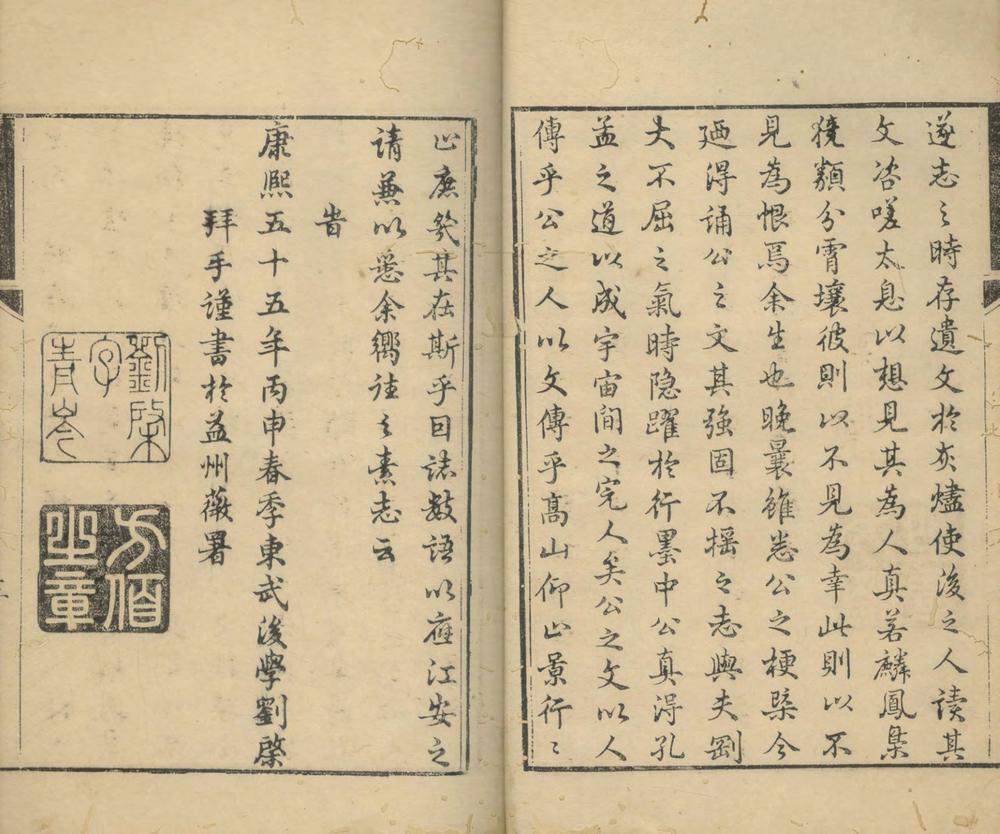 遂志之時存遺文於灰燼使後之人讀其
文咨嗟太息以想見其為人真若麟鳳梟
獍纇分霄壤彼則以不見為幸此則以不
見為恨焉余生也晚曩雖悉公之梗槩今
廼得誦公之文其強固不揺之志與夫剛
大不屈之氣時隐躍於行墨中公真得孔
孟之道以成宇宙間之完人矣公之文以人
傳乎公之人以文傳乎髙山仰止景行〻
止庶㡬其在斯乎囙誌數語以應江安之
請兼以慰余嚮往之素志云
旹
康熙五十五年丙申春季東武後學劉棨
拜手謹書於益州薇署
劉棨
字
青岑
方伯
之章